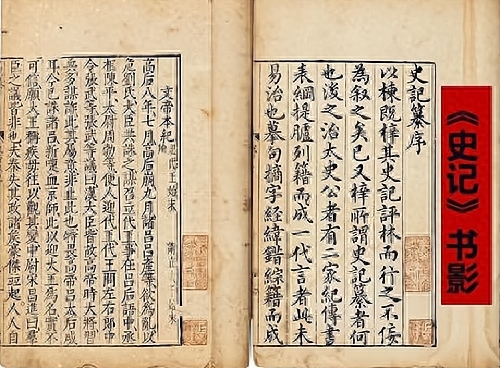 《史记》书影
史記纂序
以棟既梓其史記評林而行之不佞
為叙之矣已又梓所謂史記纂者何
也浚之治太史公者有二家紀傳書
表綱提臚列籍而成一代言者此未
易治也摹句摘字經緯錯綜籍而成
文帝本紀
高后八年七月高后崩九月諸呂呂產等欲為亂以
危劉氏大臣共誅之謀召立代王事在呂后語中丞
相陳平太尉周勃等使人迎代王代王問左右郎中
令張武等張武等議曰漢大臣皆故高帝時大將習
兵多謀詐此其屬意非止此也特畏高帝呂太后威
耳今已誅諸呂新喋血京師此以迎大王為名實不
可信願大王稱疾毋往以觀其變中尉宋昌進曰羣
臣之議皆非也夫秦失其政諸侯豪傑並起人人自